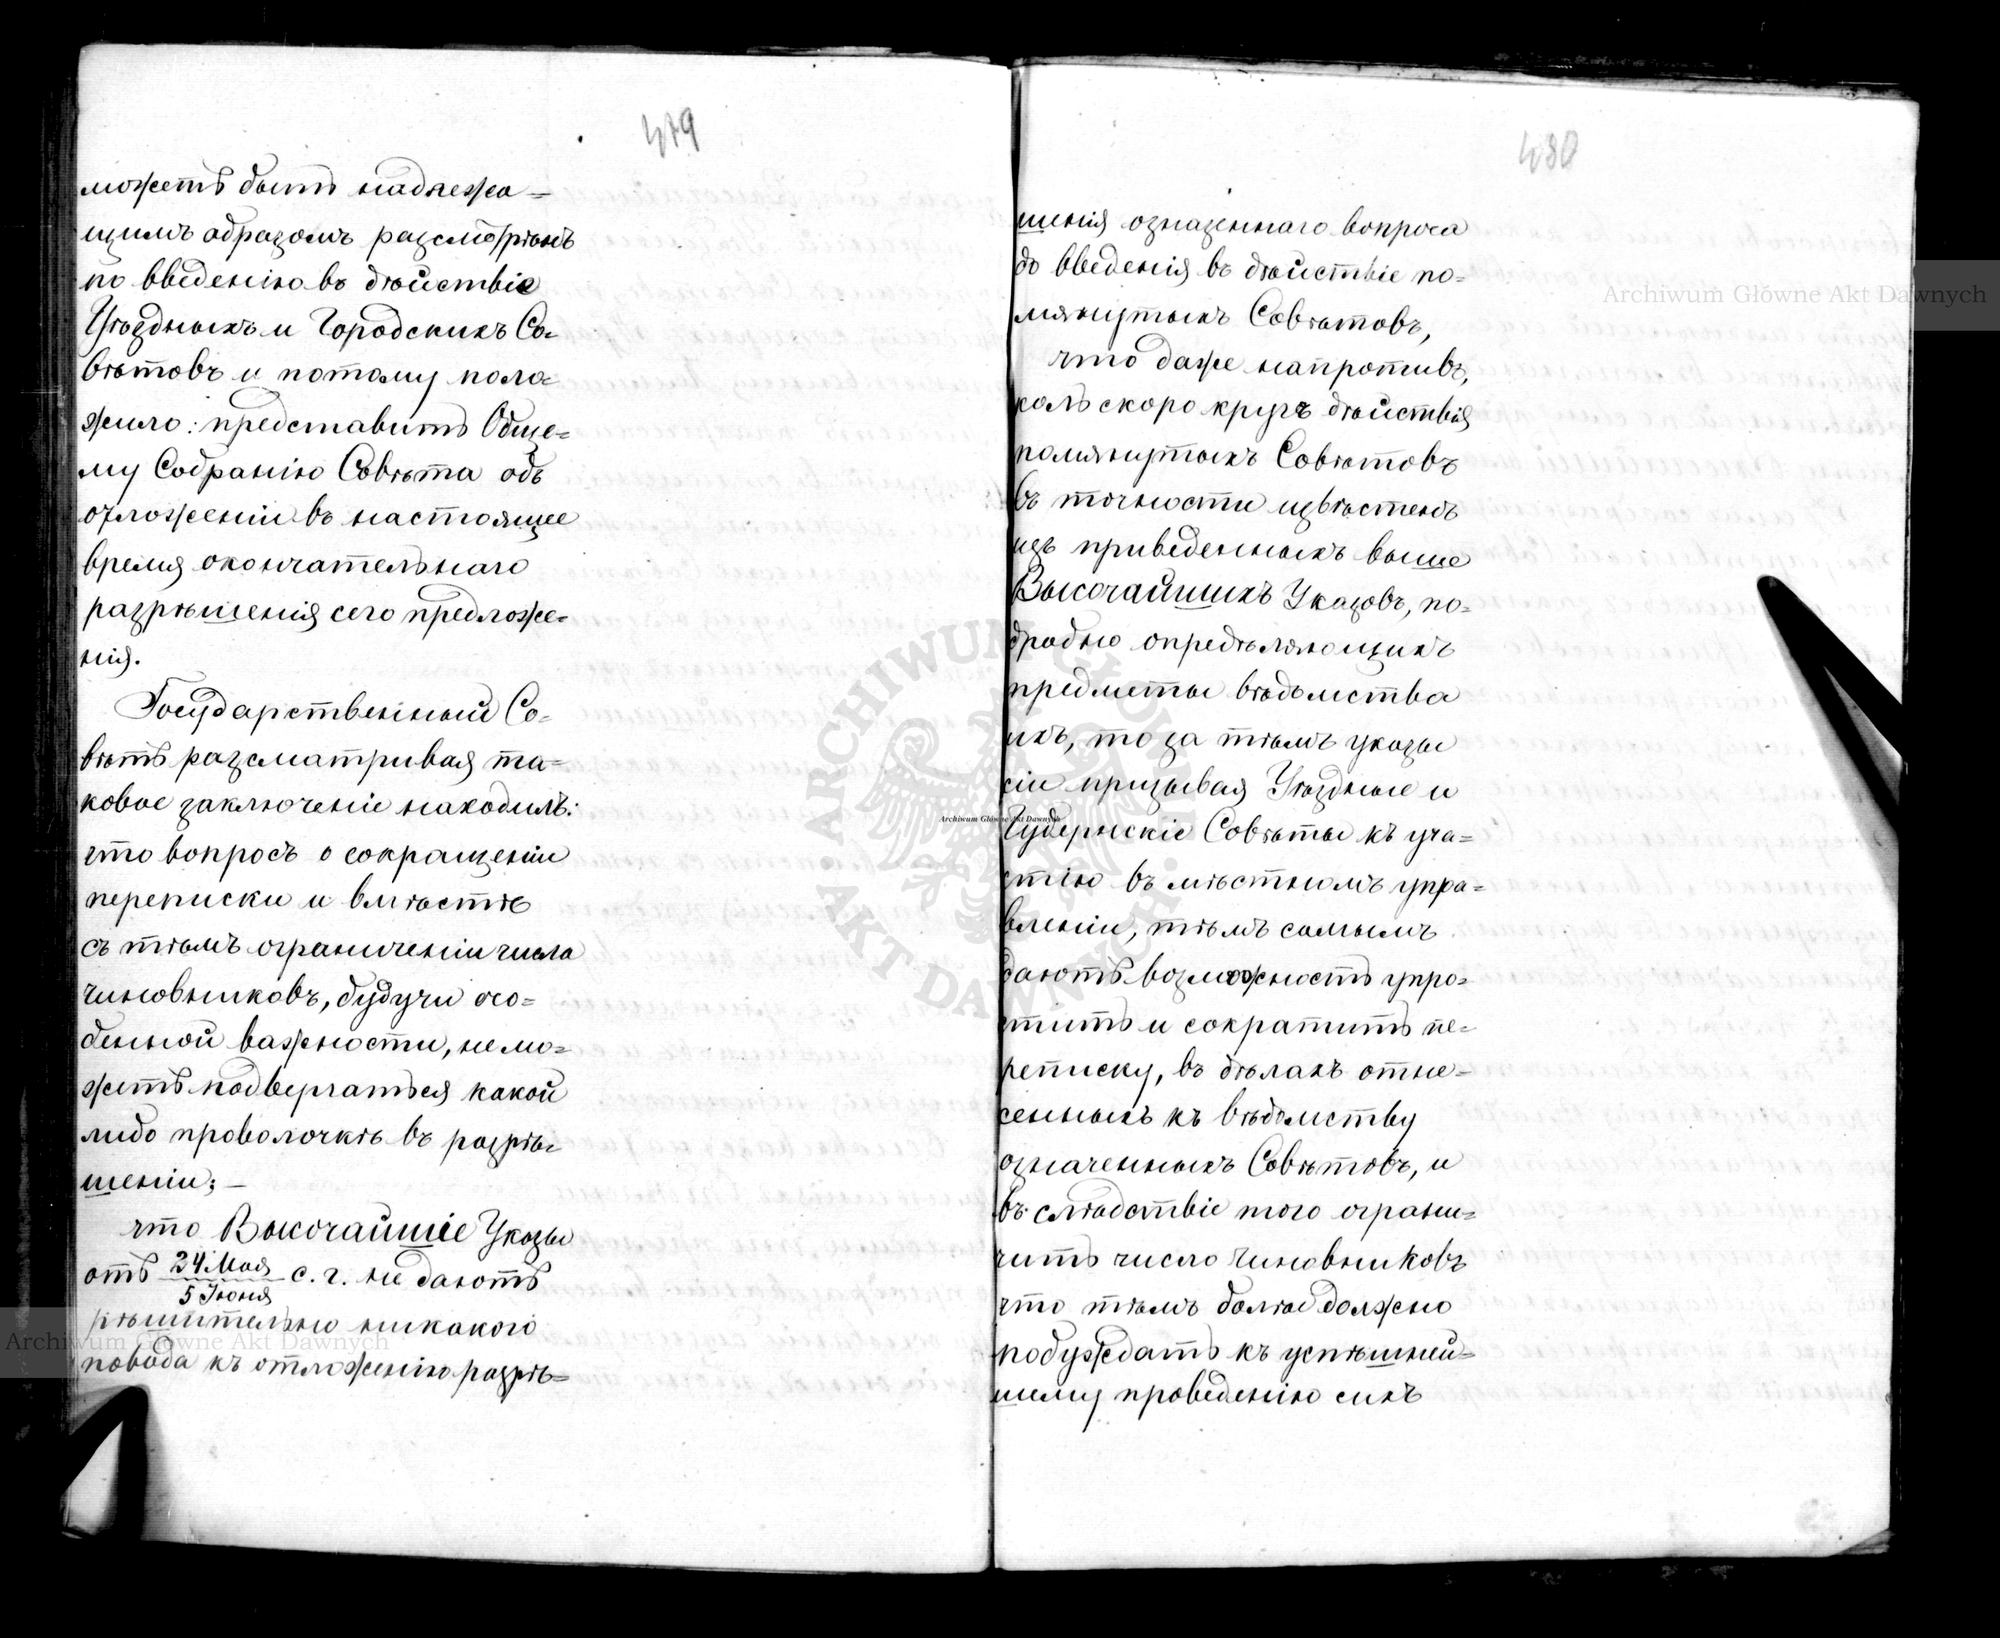 479
можетъ быть надлежа=
щимъ образомъ разсмотрѣнъ
по введенію въ дѣйствіе
Уѣздныхъ и Городскихъ Со=
вѣтовъ и потому поло=
жило: представить Обще=
му Собранію Совѣта объ
отложеніи въ настоящее
время окончательнаго
разрѣшенія сего предложе=
нія.
Государственный Со=
вѣтъ разсматривая та=
ковое заключеніе находилъ:
что вопросъ о сокращеніи
переписки и вмѣстѣ
съ тѣмъ ограниченіи числа
чиновниковъ, будучи осо=
бенной важности, не мо=
жетъ подвергаться какой
либо проволочкѣ въ разрѣ=
шеніи; —
что Высочайшіе Указы
отъ 24 Мая / 5 Іюня с. г. не даютъ
рѣшительно никакого
повода къ отложенію разрѣ=
480
шенія означеннаго вопроса
до введенія въ дѣйствіе по=
мянутыхъ Совѣтовъ,
что даже напротивъ,
коль скоро кругъ дѣйствія
помянутыхъ Совѣтовъ
въ точности извѣстенъ
изъ приведенныхъ выше
Высочайшихъ Указовъ, по=
дробно опредѣляющихъ
предметы вѣдомства
ихъ, то за тѣмъ указы
сіи призывая Уѣздные и
Губернскіе Совѣты къ уча=
стію въ мѣстномъ упра=
вленіи, тѣмъ самымъ
даютъ возможность упро=
стить и сократить пе=
реписку, въ дѣлахъ отне=
сенныхъ къ вѣдомству
означенныхъ Совѣтовъ, и
въ слѣдствіе того ограни=
чить число чиновниковъ
что тѣмъ болѣе должно
побуждать къ успѣшнѣй=
шему проведенію сихъ
Archiwum Główne Akt Dawnych
Archiwum Główne Akt Dawnych
Archiwum Główne Akt Dawnych
ARCHIWUM GŁÓWNE AKT DAWNYCH